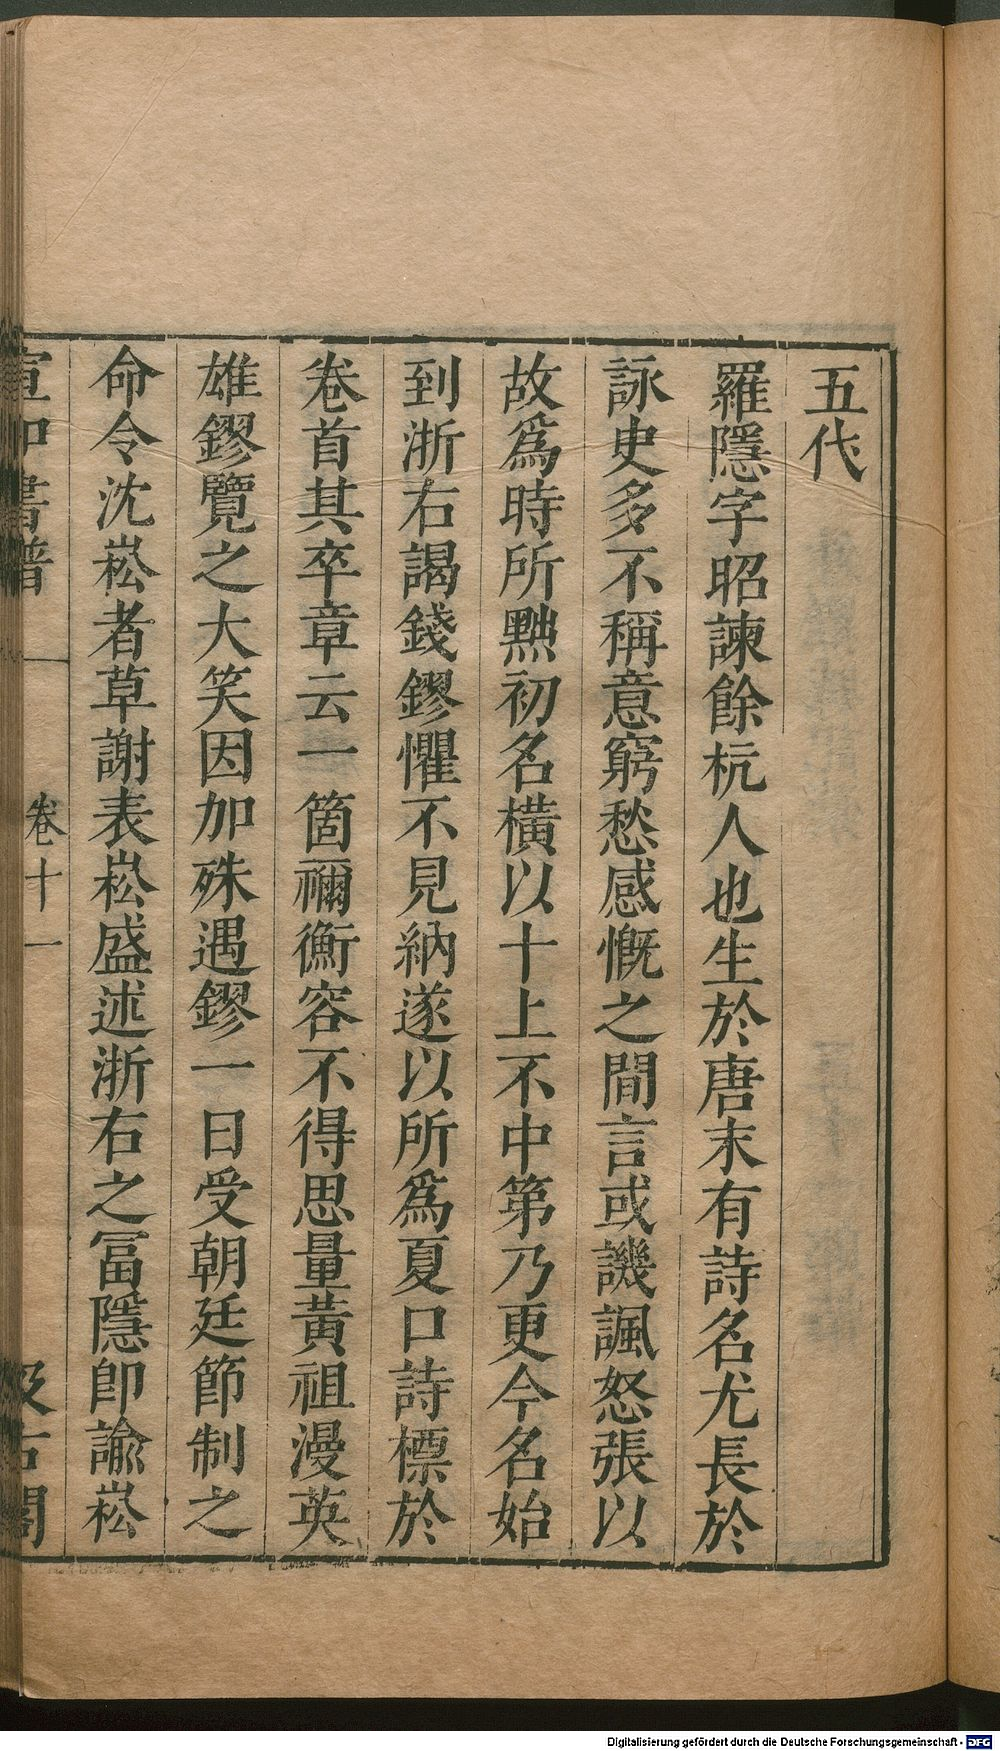 五代
羅隱字昭諫餘杭人也生於唐末有詩名尤長於
詠史多不稱意窮愁感慨之間言或譏諷怒張以
故爲時所黜初名橫以十上不中第乃更今名始
到浙右謁錢鏐懼不見納遂以所爲夏口詩標於
卷首其卒章云一箇禰衡容不得思量黃祖漫英
雄鏐覽之大笑因加殊遇鏐一日受朝廷節制之
命令沈崧者草謝表崧盛述浙右之冨隱卽諭崧
宣和書譜 卷十一 汲古閣
Digitalisierung gefördert durch die Deutsche Forschungsgemeinschaft - DFG